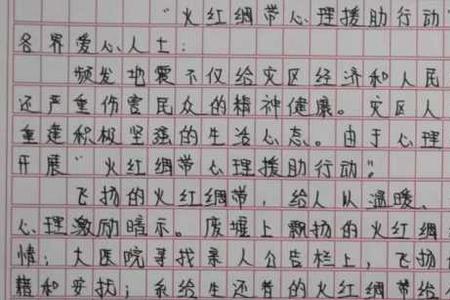 “火红绸带心理援助行动
各界爱心人士:
频发地震不仅给灾区经济和人民
还严重伤害民众的精神健康。灾区人
重建积极坚强的生活心态。由于心理
开展“火红绸带心理援助行动”。
飞扬的火红绸带,给人从温暖、
心理激励暗示。废墟上飘扬的火红绸
情;大医院寻找亲人公告栏上,飞扬
藉和安抚;系给生还者的火红绸带给